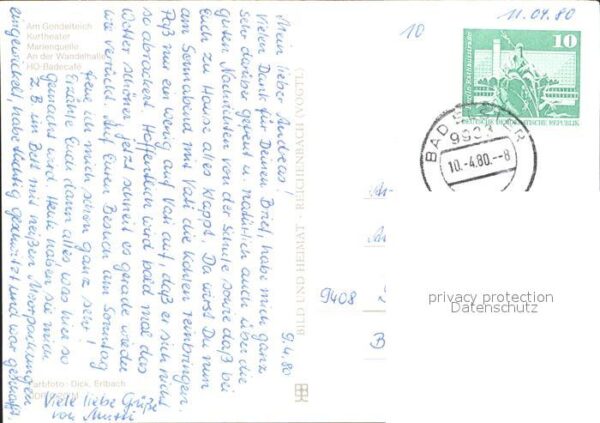 Am Gondelteich
Kurtheater
Marienquelle
An der Wandelhalle
HO-Badecafé
9.4.80
Mein lieber Andreas!
Vielen Dank für Deinen Brief, habe mich ganz
sehr darüber gefreut u. natürlich auch über die
guten Nachrichten von der Schule sowie daß bei
Euch zu Hause alles klappt. Da wirst Du nun
am Sonnabend mit Vati die Kohlen reinbringen.
Paß nur ein wenig auf Vati auf, daß er sich nicht
so abrackert. Hoffentlich wird bald mal das
Wetter schöner, jetzt schneit es gerade wieder
wie verrückt. Auf Euren Besuch am Sonntag
freue ich mich schon ganz sehr!
Erzähle Euch dann alles was hier so
gemacht wird. Heute haben sie mich
z.B. im Bett mit heißen Moorpackungen
eingewickelt, habe tüchtig geschwitzt und war geschafft.
Viele liebe Grüße
von Mutti
Farbfoto: Dick, Erlbach
BILD UND HEIMAT · REICHENBACH (VOGTL)
10
11.04.80
10
DEUTSCHE DEMOKRATISCHE REPUBLIK
BAD ELSTER
9933
10.-4.80.--8
9408
privacy protection
Datenschutz